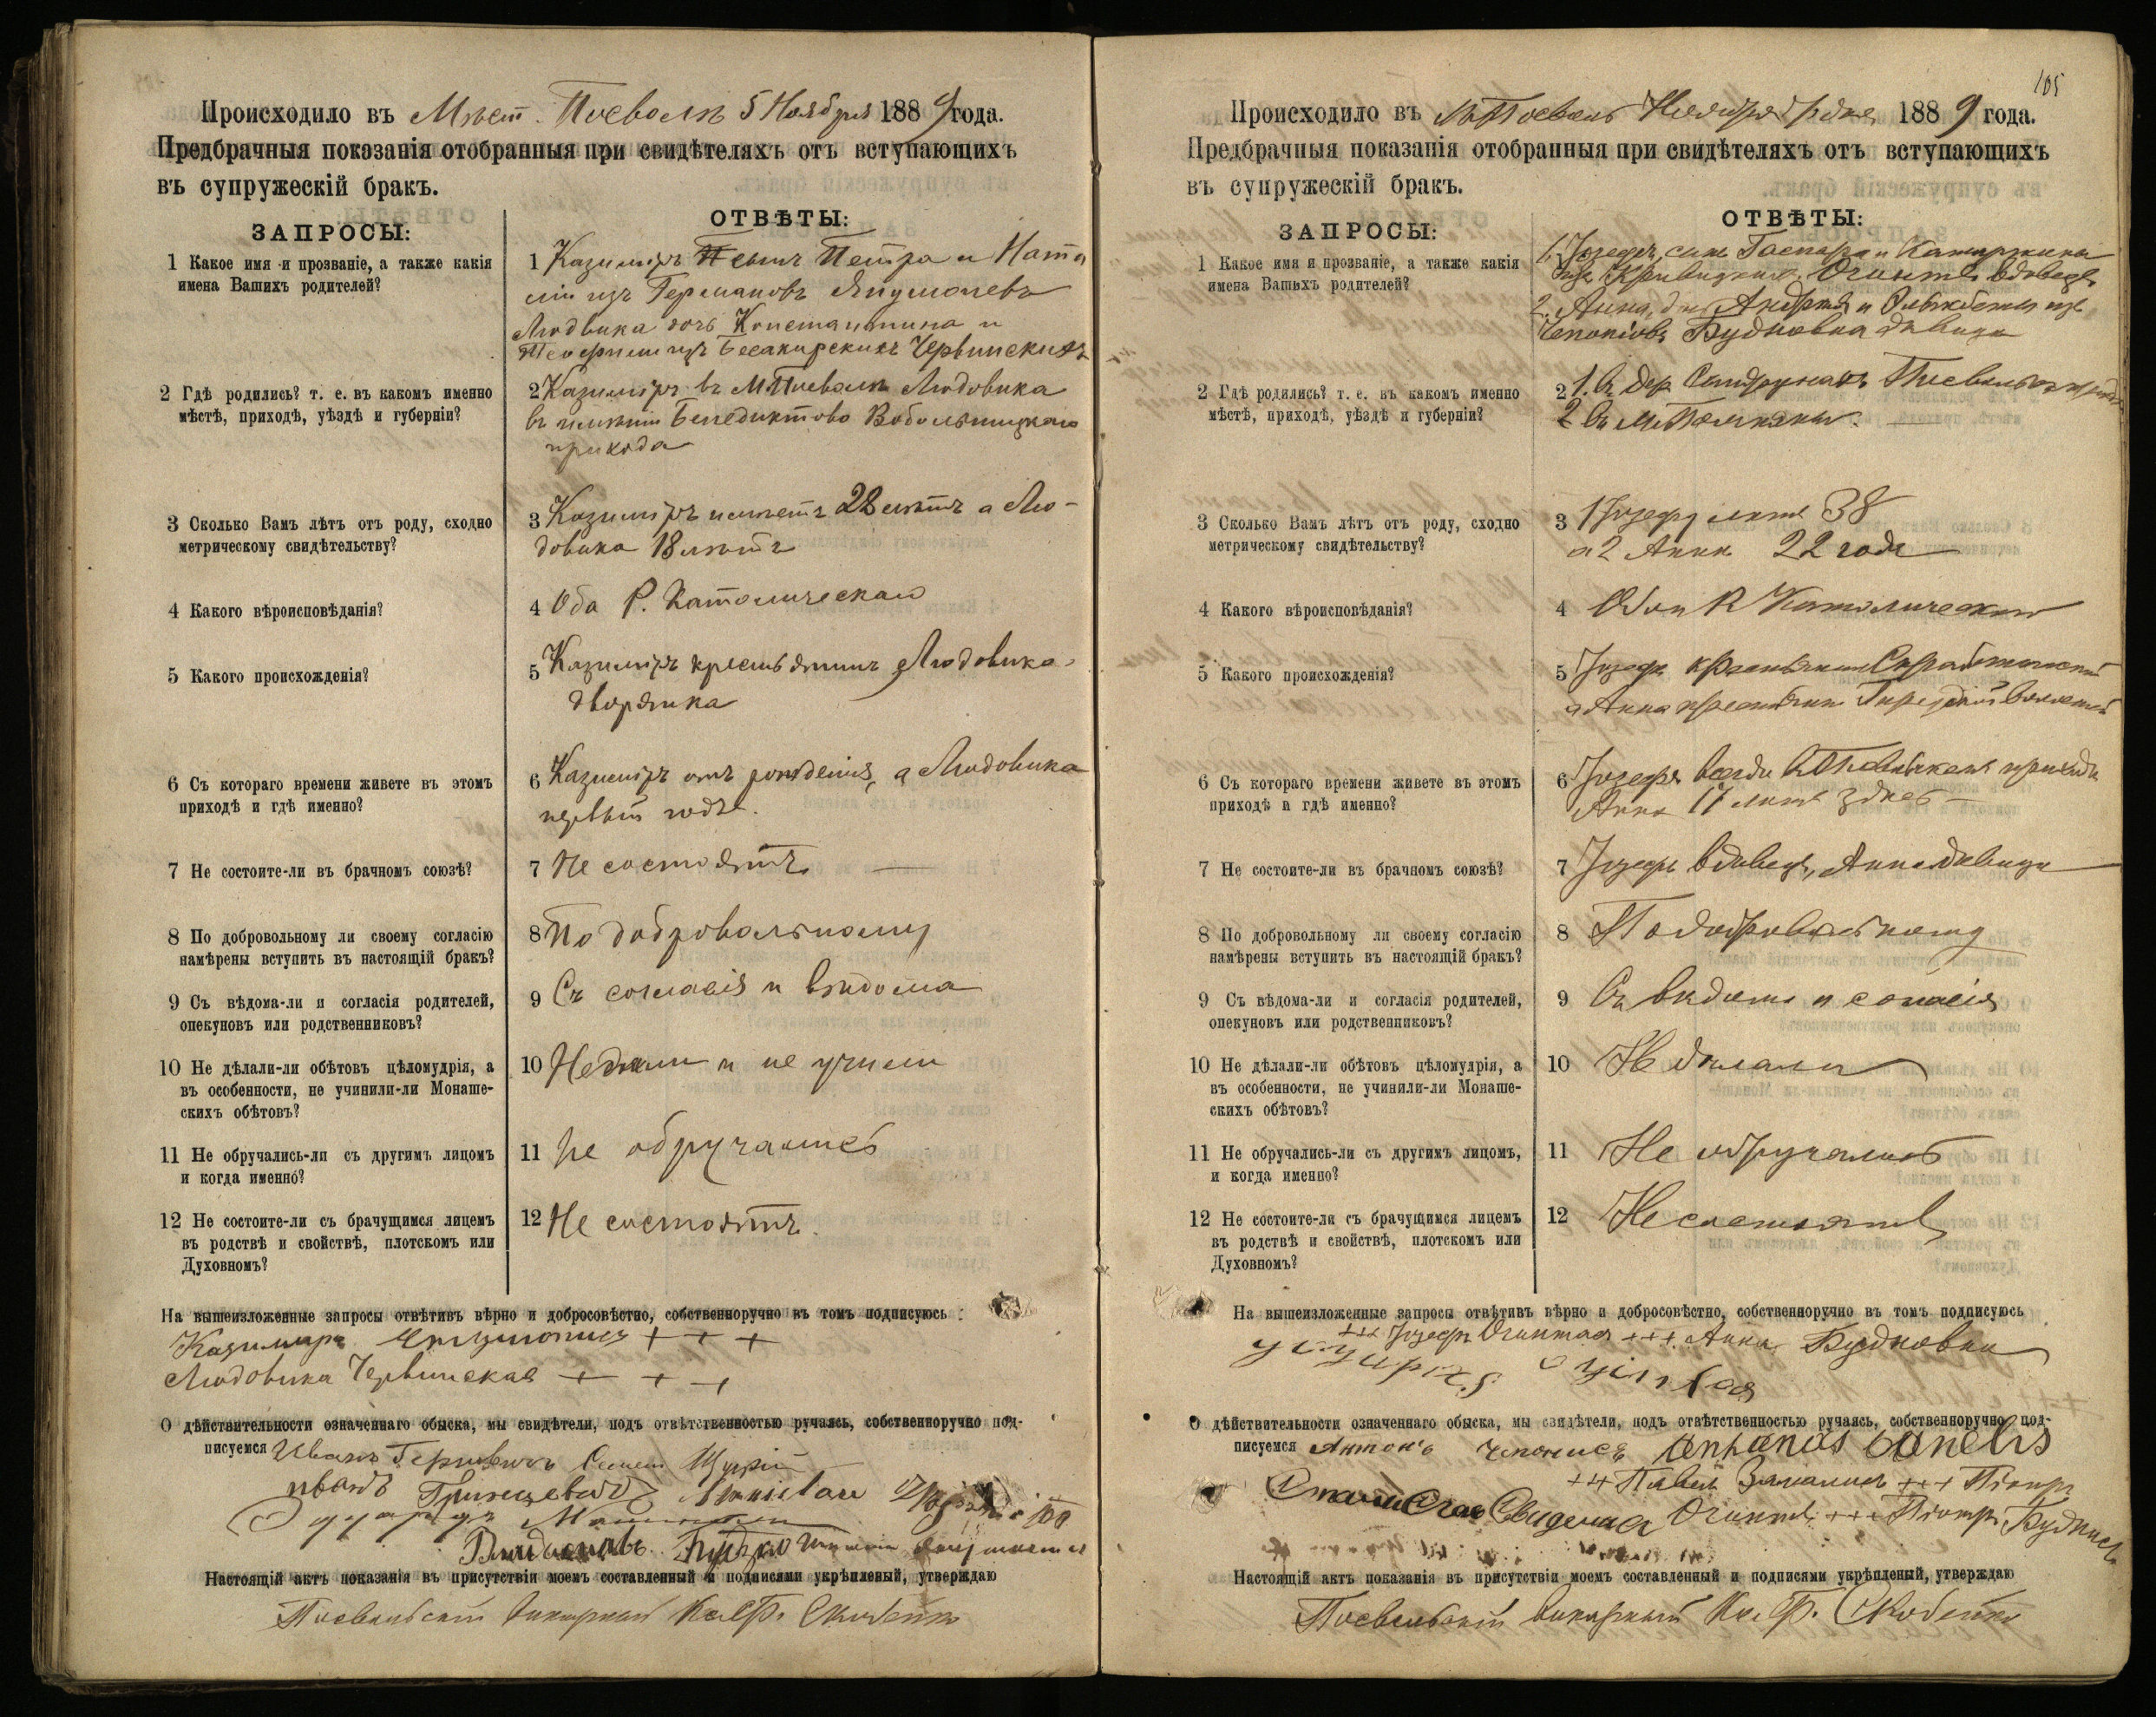 Происходило въ Мѣст. Посволѣ 5 Ноября 1889 года.
Предбрачныя показанія отобранныя при свидѣтеляхъ отъ вступающихъ
въ супружескій бракъ.
ЗАПРОСЫ:
ОТВѢТЫ:
1 Какое имя и прозваніе, а также какія
имена Вашихъ родителей?
1 Казиміръ сынъ Петра и Ната
ліи изъ Германовъ
Людвика дочь Константина и
Теофиліи изъ Червинскихъ
2 Гдѣ родились? т. е. въ какомъ именно
мѣстѣ, приходѣ, уѣздѣ и губерніи?
2 Казиміръ въ М. Посволѣ Людовика
въ имѣніи Бенедиктово Вобольницкаго
прихода
3 Сколько Вамъ лѣтъ отъ роду, сходно
метрическому свидѣтельству?
3 Казиміръ имѣетъ 28 лѣтъ а Лю-
довика 18 лѣтъ
4 Какого вѣроисповѣданія?
4 Оба Р. Католическаго
5 Какого происхожденія?
5 Казиміръ крестьянинъ Людовика
дворянка
6 Съ котораго времени живете въ этомъ
приходѣ и гдѣ именно?
6 Казиміръ отъ рожденія, а Людовика
первый годъ.
7 Не состоите-ли въ брачномъ союзѣ?
7 Не состоятъ
8 По добровольному ли своему согласію
намѣрены вступить въ настоящій бракъ?
8 По добровольному
9 Съ вѣдома-ли и согласія родителей,
опекуновъ или родственниковъ?
9 Съ согласія и вѣдома
10 Не дѣлали-ли обѣтовъ цѣломудрія, а
въ особенности, не учинили-ли Монаше-
скихъ обѣтовъ?
10 и не
11 Не обручались-ли съ другимъ лицомъ
и когда именно?
11 Не обручались
12 Не состоите-ли съ брачущимся лицемъ
въ родствѣ и свойствѣ, плотскомъ или
Духовномъ?
12 Не состоятъ.
На вышеизложенные запросы отвѣтивъ вѣрно и добросовѣстно, собственноручно въ томъ подписуюсь
Казиміръ + + +
Людовика Червинская + + +
О дѣйствительности означеннаго обыска, мы свидѣтели, подъ отвѣтственностью ручаясь, собственноручно под-
писуемся Иванъ
Настоящій актъ показанія въ присутствіи моемъ составленный и подписями укрѣпленый, утверждаю
Посвольскій викарный Кс. Ф.
105
Происходило въ М. Посволь Ноября дня 1889 года.
Предбрачныя показанія отобранныя при свидѣтеляхъ отъ вступающихъ
въ супружескій бракъ.
ЗАПРОСЫ:
ОТВѢТЫ:
1 Какое имя и прозваніе, а также какія
имена Вашихъ родителей?
1. Іозефъ, сынъ Гаспара и Катаржины
изъ вдовецъ
2. Анна, Андрея и Ельжбеты изъ
Чепонісвъ Будковна дѣвица
2 Гдѣ родились? т. е. въ какомъ именно
мѣстѣ, приходѣ, уѣздѣ и губерніи?
2 1. въ дер.
2 въ М.
3 Сколько Вамъ лѣтъ отъ роду, сходно
метрическому свидѣтельству?
3 1 Іозефу лѣтъ 38
а 2 Аннѣ 22 года
4 Какого вѣроисповѣданія?
4 Обои Р Католическаго
5 Какого происхожденія?
5 Іозефъ крестьянинъ
а Анна крестьянка волости
6 Съ котораго времени живете въ этомъ
приходѣ и гдѣ именно?
6 Іозефъ приходѣ
Анна 17 лѣтъ здѣсь
7 Не состоите-ли въ брачномъ союзѣ?
7 Іозефъ вдовецъ, Анна дѣвица
8 По добровольному ли своему согласію
намѣрены вступить въ настоящій бракъ?
8 По добровольному
9 Съ вѣдома-ли и согласія родителей,
опекуновъ или родственниковъ?
9 Съ вѣдома и согласія
10 Не дѣлали-ли обѣтовъ цѣломудрія, а
въ особенности, не учинили-ли Монаше-
скихъ обѣтовъ?
10 Не дѣлали
11 Не обручались-ли съ другимъ лицомъ,
и когда именно?
11 Не обручались
12 Не состоите-ли съ брачущимся лицемъ
въ родствѣ и свойствѣ, плотскомъ или
Духовномъ?
12 Не состоятъ
На вышеизложенные запросы отвѣтивъ вѣрно и добросовѣстно, собственноручно въ томъ подписуюсь
+++ Іозефъ +++ Анна Будковна
О дѣйствительности означеннаго обыска, мы свидѣтели, подъ отвѣтственностью ручаясь, собственноручно под-
писуемся Антонъ
+++ Павелъ +++ Піотръ
+++ Піотръ
Настоящій актъ показанія въ присутствіи моемъ составленный и подписями укрѣпленый, утверждаю
Посвольскій викарный Кс. Ф.